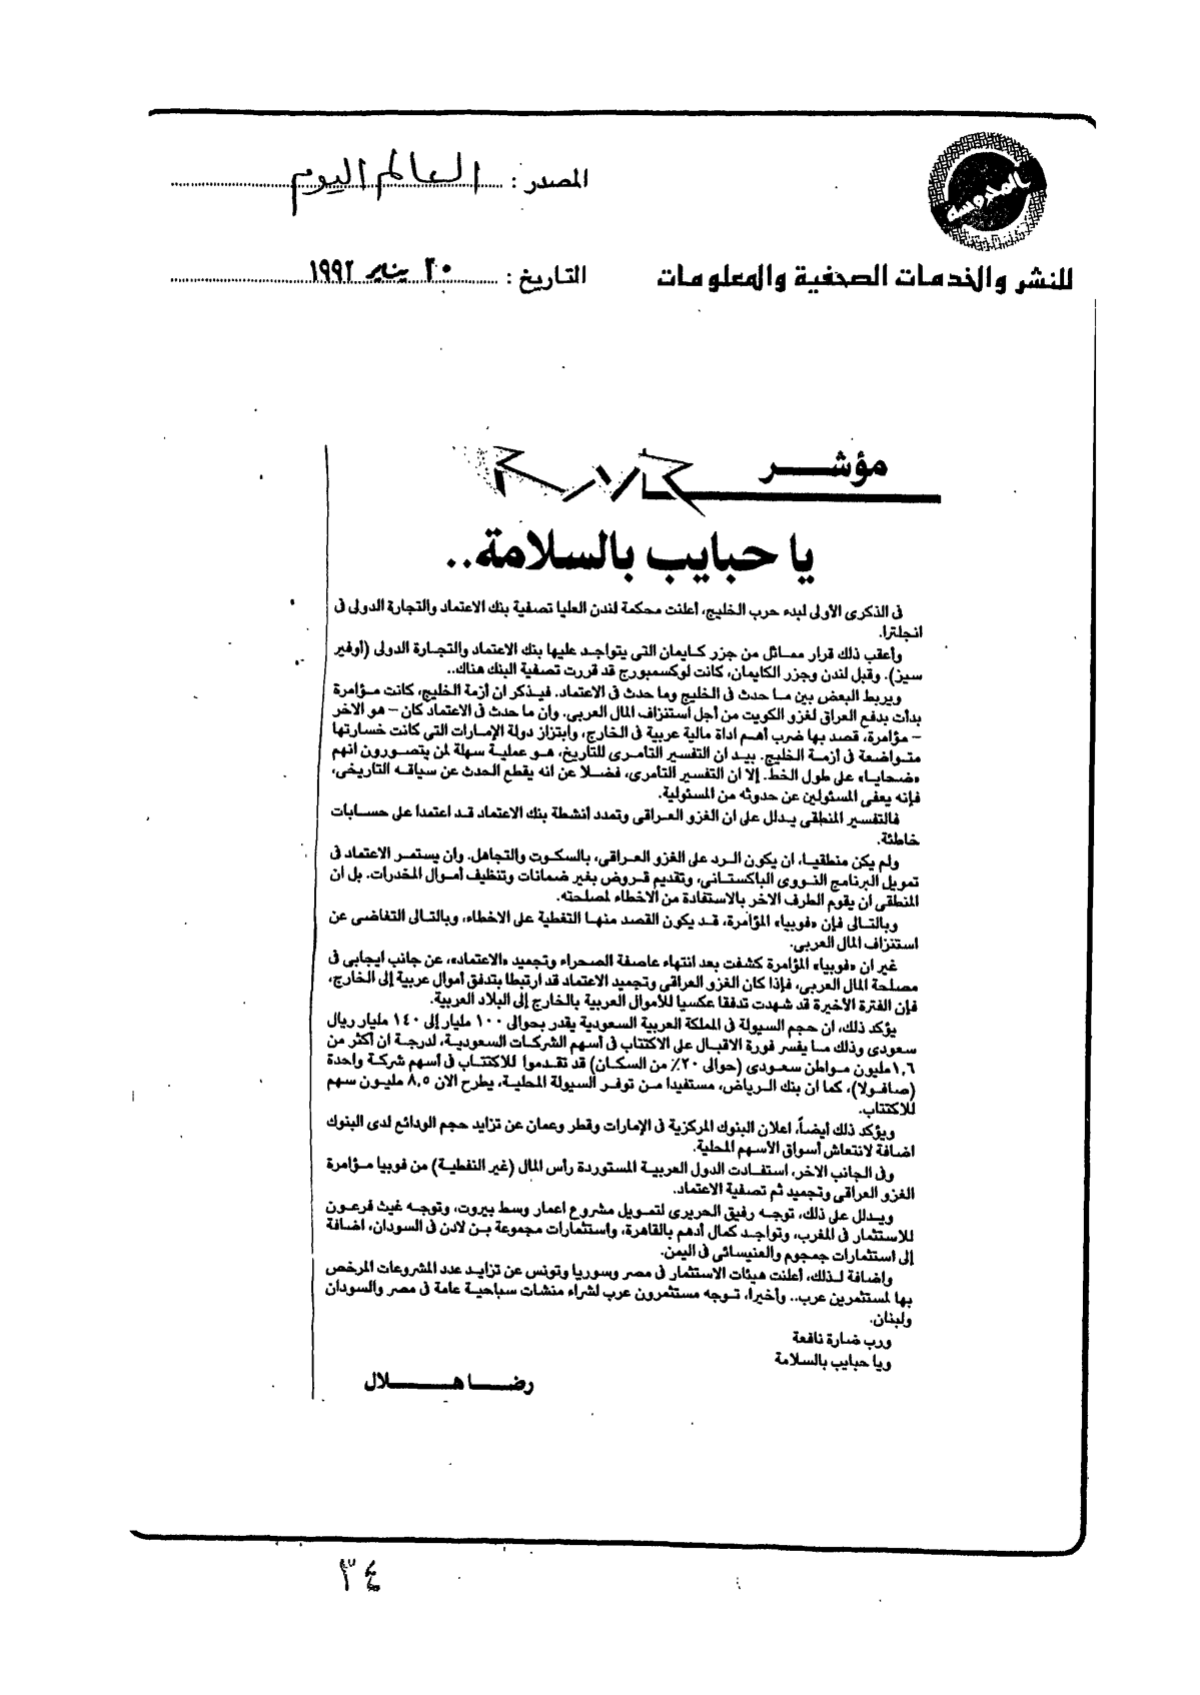 المحروسة
المصدر : العالم اليوم
للنشر والخدمات الصحفية والمعلومات
التاريخ : ٢٠ يناير ١٩٩٢
مؤشر
يا حبايب بالسلامة..
فى الذكرى الأولى لبدء حرب الخليج، أعلنت محكمة لندن العليا تصفية بنك الاعتماد والتجارة الدولى فى
انجلترا.
وأعقب ذلك قرار ممـائل من جزر كـايمان التى يتواجـد عليها بنك الاعتماد والتجـارة الدولى (أوفير
سيز). وقبل لندن وجزر الكايمان، كانت لوكسمبورج قد قررت تصفية البنك هناك..
ويربط البعض بين مـا حدث فى الخليج وما حدث فى الاعتماد. فيـذكر ان أزمة الخليج، كانت مـؤامرة
بدأت بدفع العراق لغزو الكويت من أجل استنزاف المال العربى. وان ما حدث فى الاعتماد كان - هو الاخر
- مؤامرة، قصد بها ضرب أهم اداة مالية عربية فى الخارج، وابتزاز دولة الإمـارات التى كانت خسارتها
متـواضعة فى أزمـة الخليج. بيـد ان التفسير التآمـرى للتاريخ، هـو عمليـة سهلة لمن يتصـورون انهم
«ضحايا» على طول الخط. إلا ان التفسير التآمرى، فضـلا عن انه يقطع الحدث عن سياقـه التاريخى،
فإنه يعفى المسئولين عن حدوثه من المسئولية.
فالتفسير المنطقى يـدلل على ان الغزو العـراقى وتمدد أنشطة بنك الاعتماد قـد اعتمدا على حسـابات
خاطئة.
ولم يكن منطقيـا، ان يكون الـرد على الغزو العـراقى، بالسكـوت والتجاهل. وان يستمـر الاعتماد فى
تمويل البرنامج النـووى الباكستـانى، وتقديم قـروض بغير ضمانات وتنظيف أمـوال المخدرات. بل ان
المنطقى ان يقوم الطرف الاخر بالاستفادة من الاخطاء لمصلحته.
وبالتـالى فإن «فوبيا» المؤامرة، قـد يكون القصد منهـا التغطية على الاخطاء، وبالتـالى التغاضى عن
استنزاف المال العربى.
غير ان «فوبيا» المؤامرة كشفت بعد انتهاء عاصفة الصحراء وتجميد «الاعتماد»، عن جانب ايجابى فى
مصلحة المال العربى، فإذا كان الغزو العراقى وتجميد الاعتماد قد ارتبطا بتدفق أموال عربية إلى الخارج،
فإن الفترة الأخيرة قد شهدت تدفقا عكسيا للأموال العربية بالخارج إلى البلاد العربية.
يؤكد ذلك، ان حجم السيولة فى المملكة العربية السعودية يقدر بحوالى ١٠٠ مليار إلى ١٤٠ مليار ريال
سعودى وذلك مـا يفسر فورة الاقبـال على الاكتتاب فى أسهم الشركـات السعوديـة، لدرجـة ان أكثر من
١,٦ مليون مـواطن سعـودى (حوالى ٢٠٪ من السكـان) قد تقـدموا للاكتتـاب فى أسهم شركـة واحدة
(صافـولا)، كما ان بنك الـرياض، مستفيدا مـن توفـر السيولة المحليـة، يطرح الان ٨,٥ مليـون سهم
للاكتتاب.
ويؤكد ذلك أيضاً، اعلان البنوك المركزية فى الإمارات وقطر وعمان عن تزايد حجم الودائع لدى البنوك
اضافة لانتعاش أسواق الأسهم المحلية.
وفى الجانب الاخر، استفـادت الدول العربيـة المستوردة رأس المال (غير النفطيـة) من فوبيا مـؤامرة
الغزو العراقى وتجميد ثم تصفية الاعتماد.
ويـدلل على ذلك، توجـه رفيق الحريرى لتمـويل مشروع اعمار وسط بيروت، وتوجـه غيث فرعون
للاستثمار فى المغرب، وتواجـد كمال أدهم بالقاهرة، واستثمارات مجموعة بـن لادن فى السودان، اضافة
إلى استثمارات جمجوم والعنيسائى فى اليمن.
واضافة لـذلك، أعلنت هيئات الاستثمار فى مصر وسوريا وتونس عن تزايـد عدد المشروعات المرخص
بها لمستثمرين عرب.. وأخيرا، تـوجه مستثمرون عرب لشراء منشات سياحيـة عامة فى مصر والسودان
ولبنان.
ورب ضارة نافعة
ويا حبايب بالسلامة
رضـــا هــــــلال
٣٤